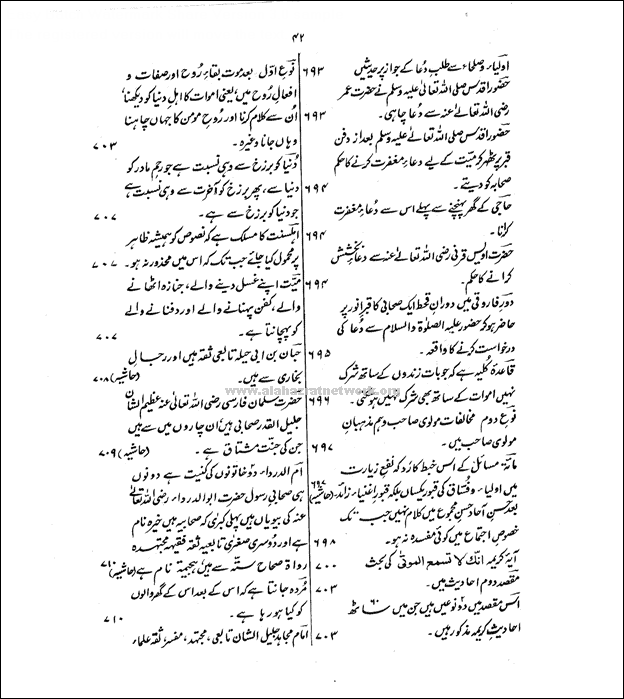 ۴۲
اولیاء وصلحاء سے طلب دُعا کے جواز پر حدیثیں ۶۹۳
حضور اقدس صلی اللہ تعالیٰ علیہ وسلم نے حضرت عمر
رضی اللہ تعالیٰ عنہ سے دعا چاہی۔ ۶۹۳
حضور اقدس صلی اللہ تعالیٰ علیہ وسلم بعد از دفن
قبر پر ٹھہر کر میّت کے لیے دعاءِ مغفرت کرنے کا حکم
صحابہ کو دیتے۔ ۶۹۴
حاجی کے گھر پہنچنے سے پہلے اس سے دُعاءِ مغفرت
کرانا۔ ۶۹۴
حضرت اویس قرنی رضی اللہ تعالیٰ عنہ سے دعائے بخشش
کرانے کا حکم۔ ۶۹۴
دَورِ فاروقی میں دورانِ قحط ایک صحابی کا قبرِ انور پر
حاضر ہوکر حضور علیہ الصلوٰۃ والسلام سے دُعا کی
درخواست کرنے کا واقعہ۔ ۶۹۵
قاعدہ کلیہ ہے کہ جو بات زندوں کے ساتھ شرک
نہیں اموات کے ساتھ بھی شرک نہیں ہوسکتی۔ ۶۹۶
نوعِ دوم مخالفات مولوی صاحب و ہم مذہبانِ
مولوی صاحب میں۔ ۶۹۷
مائۃ مسائل کے اس خبط کا رد کہ نفعِ زیارت
میں اولیاء و فُسّاق کی قبور یکساں بلکہ قبورِ اغنیاء زائد۔ (حاشیہ) ۶۹۷
بعد حسنِ آحاد حسنِ مجموع میں کلام نہیں جب تک
خصوص اجتماع میں کوئی مفسدہ نہ ہو۔ ۶۹۸
آیۂ کریمہ انک لا تسمع الموتٰی کی بحث ۷۰۰
مقصد دوم احادیث میں۔ ۷۰۳
اس مقصد میں دو نوعیں ہیں جن میں ساٹھ ۶۰
احادیثِ کریمہ مذکور ہیں۔ ۷۰۳
نوعِ اوّل بعدِ موت بقاءِ رُوح اور صفات و
افعالِ رُوح میں یعنی اموات کا اہلِ دنیا کو دیکھنا،
اُن سے کلام کرنا اور رُوحِ مومن کا جہاں چاہنا
وہاں جانا وغیرہ۔ ۷۰۳
دُنیا کو برزخ سے وہی نسبت ہے جو رحمِ مادر کو
دنیا سے، پھر برزخ کو آخرت سے وہی نسبت ہے
جو دنیا کو برزخ سے ہے۔ ۷۰۷
اہلسنت کا مسلک ہے کہ نصوص کو ہمیشہ ظاہر
پر محمول کیا جائے جب تک کہ اس میں محذور نہ ہو۔ ۷۰۷
میّت اپنے غسل دینے والے، جنازہ اٹھانے
والے، کفن پہنانے والے اور دفنانے والے
کو پہچانتا ہے۔ ۷۰۷
حبان بن ابی جبلہ تابعی ثقہ ہیں اور رجالِ
بخاری سے ہیں۔ (حاشیہ) ۷۰۸
www.alahazratnetwork.org
حضرت سلمان فارسی رضی اللہ تعالیٰ عنہ عظیم الشان
جلیل القدر صحابی ہیں ان چاروں میں سے ہیں
جن کی جنّت مشتاق ہے۔ (حاشیہ) ۷۰۹
اُم الدرداء دو خاتونوں کی کنیت ہے دونوں
ہی صحابیِ رسول حضرت ابوالدرداء رضی اللہ تعالیٰ
عنہ کی بیویاں ہیں پہلی کبریٰ کہ صحابیہ ہیں خیرہ نام
ہے اور دُوسری صغریٰ تابعیہ ثقہ فقیہہ مجتہدہ
رواۃِ صحاح ستّہ سے ہیں ہجیمیۃ نام ہے (حاشیہ) ۷۱۰
مُردہ جانتا ہے کہ اس کے بعد اس کے گھر والوں
کو کیا ہو رہا ہے۔ ۷۱۰
امام مجاہد جلیل الشان تابعی، مجتہد، مفسر، ثقہ علماء